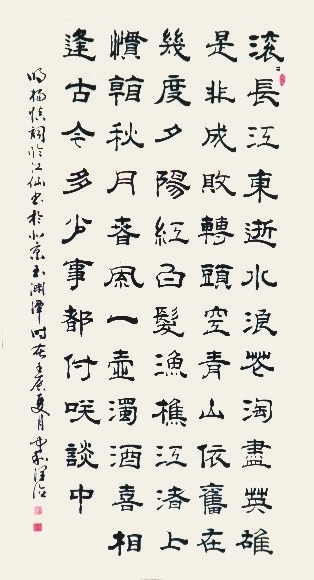 滚〻長江東逝水浪花淘盡英雄
是非成敗轉頭空青山依舊在
幾度夕陽紅白髮漁樵江渚上
慣看秋月春風一壺濁酒喜相
逢古今多少事都付咲談中
明楊慎詞臨江仙書於北京玉淵潭時在壬辰夏月